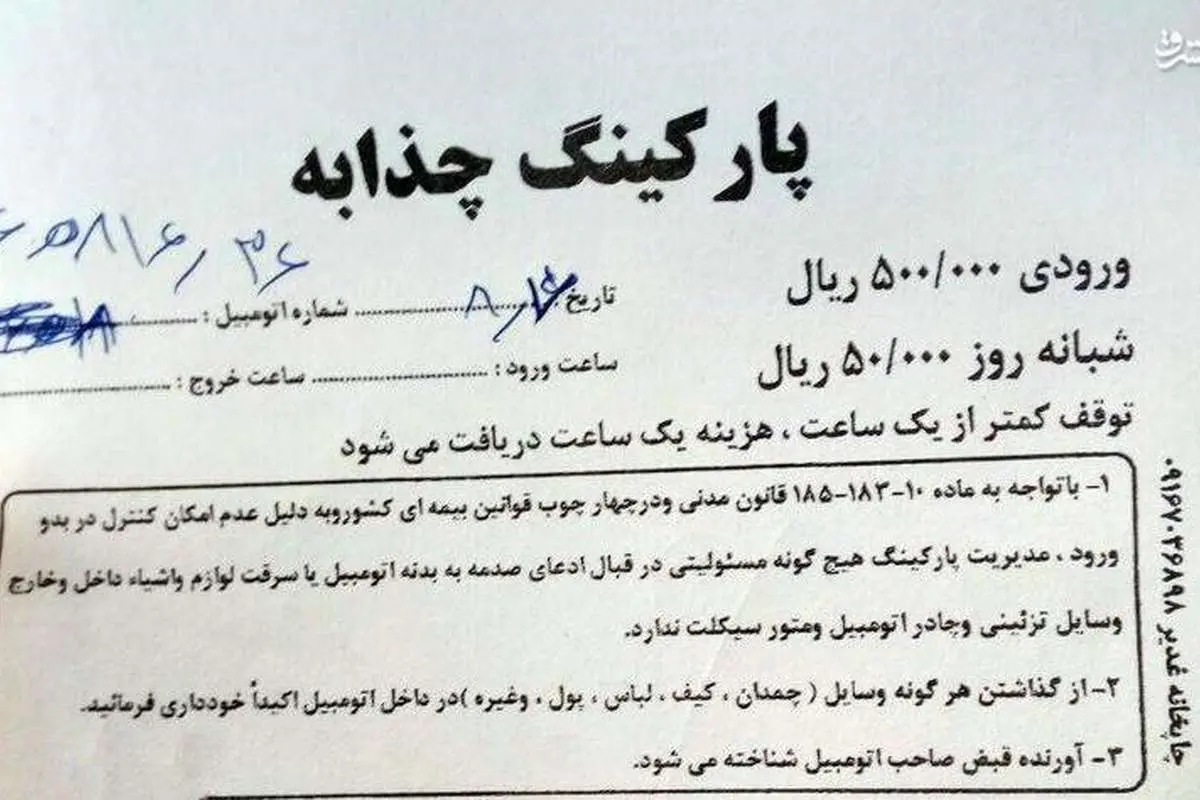 پارکینگ چذابه
ورودی ۵۰۰/۰۰۰ ریال
شبانه روز ۵۰/۰۰۰ ریال
تاریخ ............ شماره اتومبیل : ............
ساعت ورود : ............ ساعت خروج : ............
توقف کمتر از یک ساعت ، هزینه یک ساعت دریافت می شود
۱- باتواجه به ماده ۱۰-۱۸۳-۱۸۵ قانون مدنی ودرچهار چوب قوانین بیمه ای کشوروبه دلیل عدم امکان کنترل در بدو
ورود ، مدیریت پارکینگ هیچ گونه مسئولیتی در قبال ادعای صدمه به بدنه اتومبیل یا سرقت لوازم واشیاء داخل وخارج
وسایل تزئینی وچادر اتومبیل ومتور سیکلت ندارد.
۲- از گذاشتن هر گونه وسایل ( چمدان ، کیف ، لباس ، پول ، وغیره )در داخل اتومبیل اکیداً خودداری فرمائید.
۳- آورنده قبض صاحب اتومبیل شناخته می شود.
چاپخانه غدیر ۰۹۱۶۷۰۳۶۸۹۸